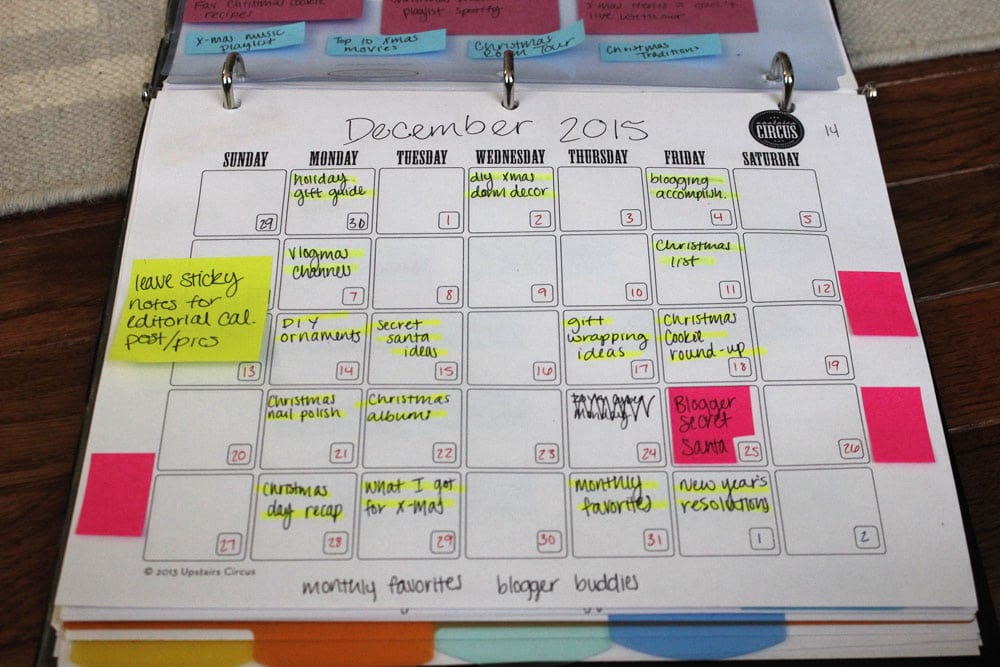 Fav Christmas Cookie
recipes
playlist spotify
X-mas music
playlist
Top 10 Xmas
movies
Christmas
Room Tour
Christmas
Traditions
December 2015
CIRCUS
14
SUNDAY MONDAY TUESDAY WEDNESDAY THURSDAY FRIDAY SATURDAY
holiday
gift guide
diy xmas
dorm decor
blogging
accomplish.
29 30 1 2 3 4 5
vlogmas
channel
Christmas
list
7 8 9 10 11 12
leave sticky
notes for
editorial cal.
post/pics
DIY
ornaments
secret
santa
ideas
gift
wrapping
ideas
Christmas
Cookie
round-up
13 14 15 16 17 18 19
Christmas
nail polish
Christmas
albums
monday
Blogger
secret
Santa
20 21 22 23 24 25 26
Christmas
day recap
what I got
for x-mas
monthly
favorites
new year's
resolutions
27 28 29 30 31 1 2
© 2013 Upstairs Circus
monthly favorites blogger buddies